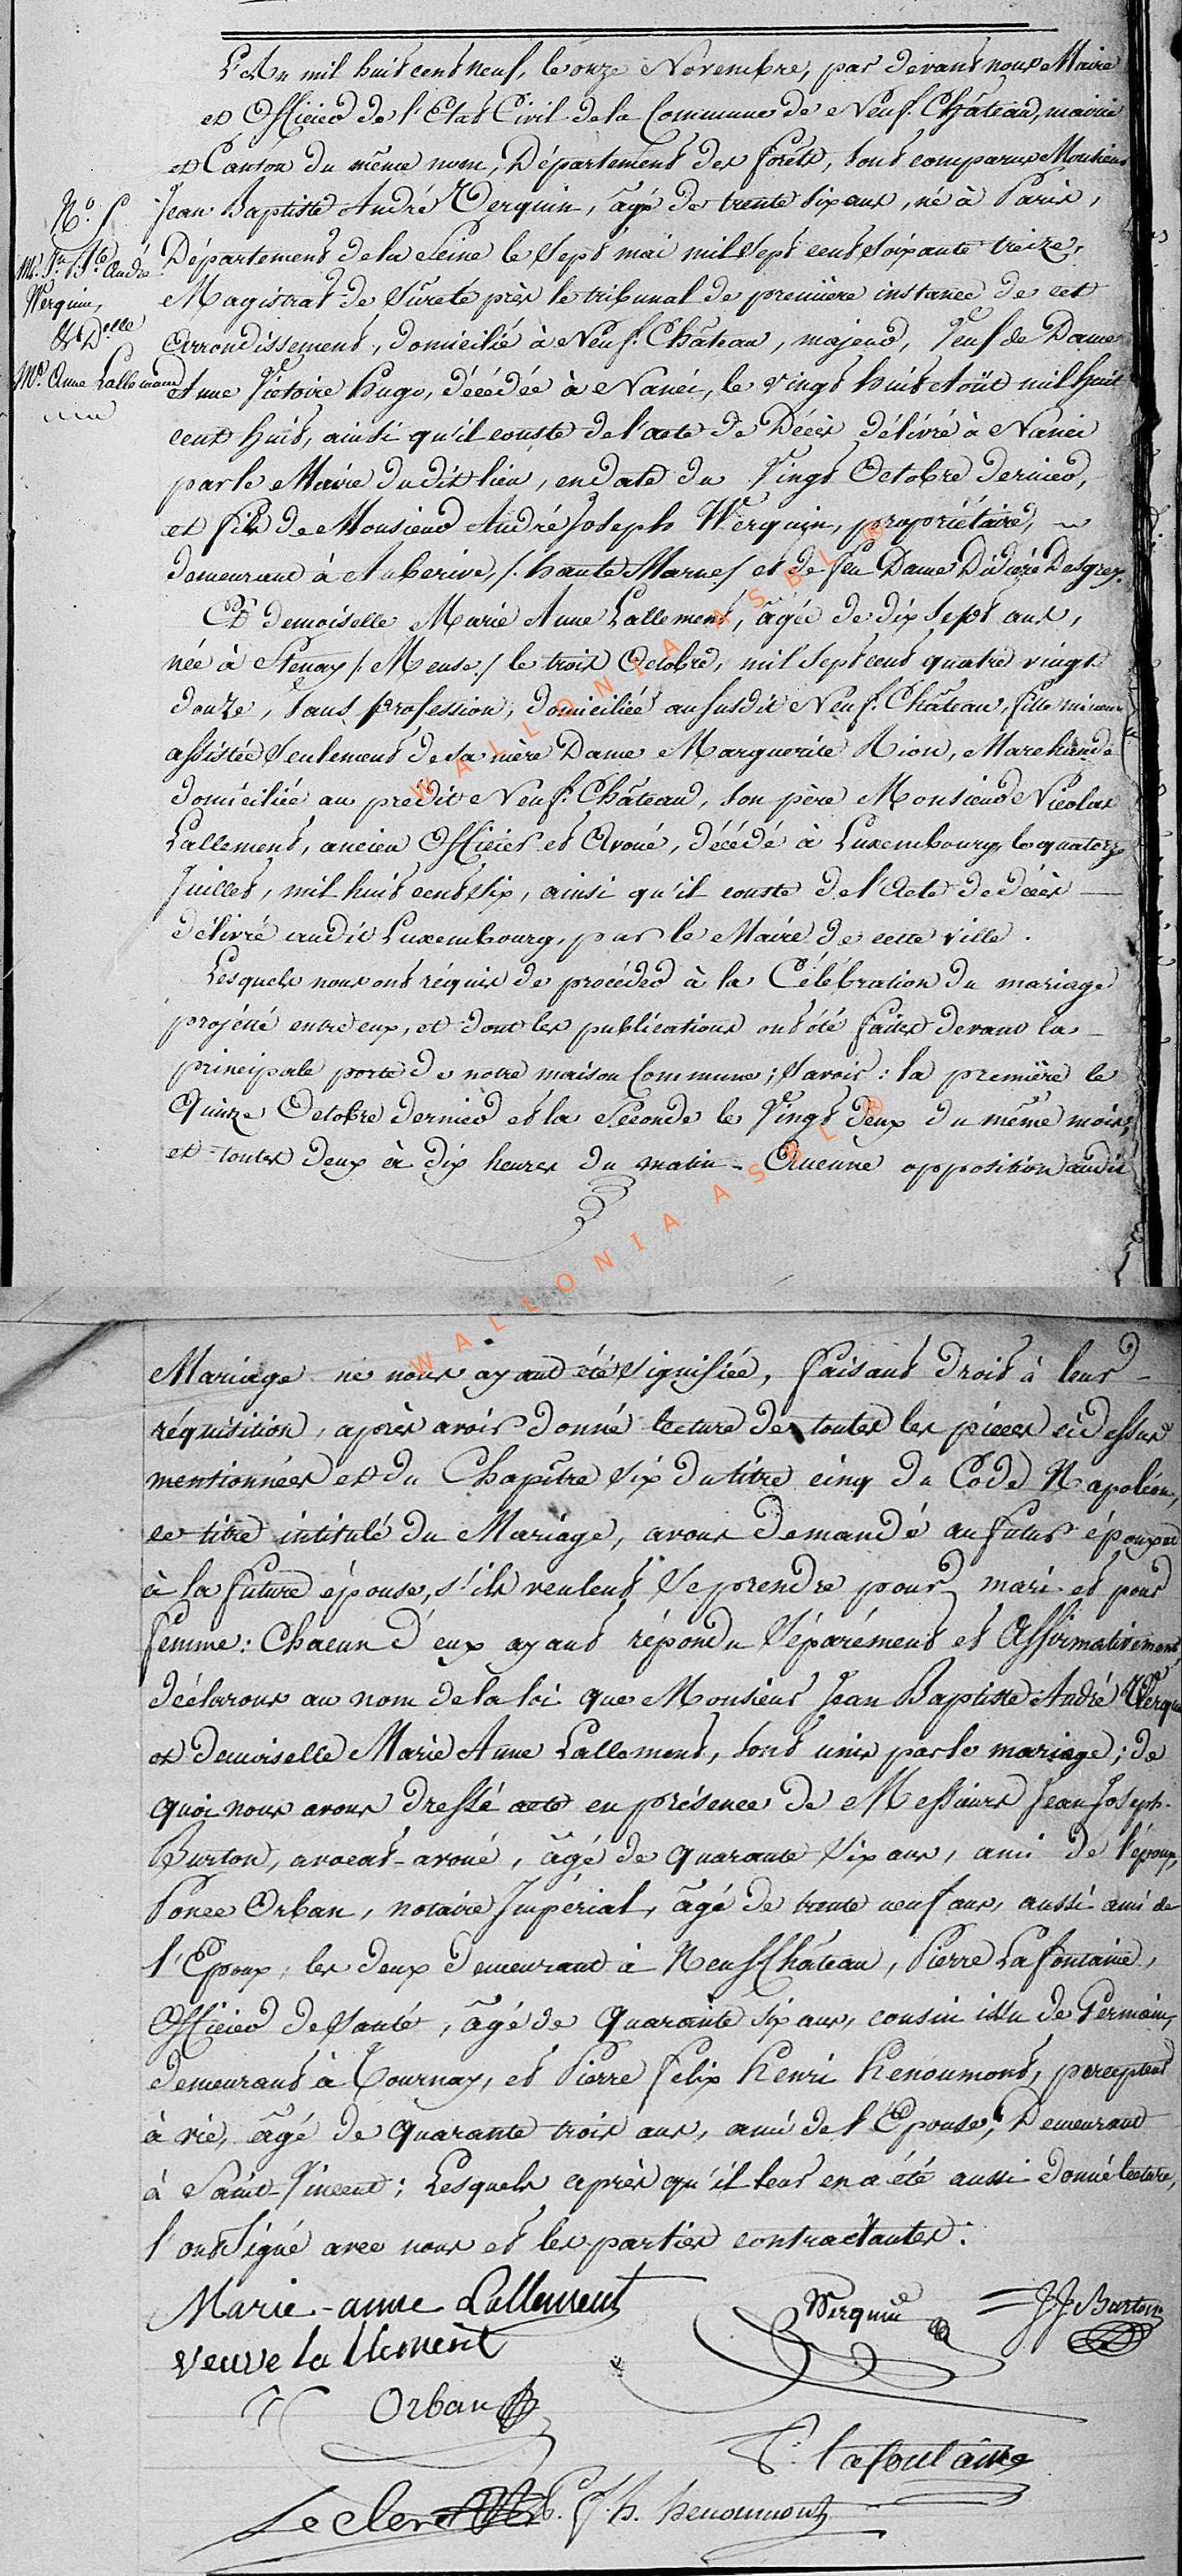 L'An mil huit cent neuf, le onze Novembre, par devant nous Maire
et Officier de l'Etat Civil de la Commune de Neuf-Château, mairie
et Canton du même nom, Département des forêts, sont comparus Monsieur
Jean Baptiste André Werquin, âgé de trente six ans, né à Paris,
Département de la Seine le Sept mai mil sept cent soixante treize,
Magistrat de Sûreté près le tribunal de première instance de cet
Arrondissement, domicilié à Neuf-Château, majeur, Veuf de Dame
Anne Victoire hugo, décédée à Nanci, le vingt huit Août mil huit
cent huit, ainsi qu'il conste de l'acte de Décès délivré à Nanci
par le Maire dudit lieu, en date du Vingt Octobre dernier,
et fils de Monsieur André Joseph Werquin, propriétaire,
demeurant à Auberive, /. haute Marne / et de feu Dame Didière Desgrez.
Et demoiselle Marie Anne Lallement, âgée de dix sept ans,
née à Stenay /. Meuse ./ le trois Octobre, mil sept cent quatre vingt
douze, sans profession, domiciliée au susdit Neuf-Château, fille mineure
assistée seulement de sa mère Dame Marguerite Rion, Marchande
domiciliée au prédit Neuf-Château, son père Monsieur Nicolas
Lallement, ancien Officier et Avoué, décédé à Luxembourg, le quatorze
Juillet, mil huit cent six, ainsi qu'il conste de l'Acte de décès
délivré audit Luxembourg, par le Maire de cette ville.
Lesquels nous ont réquis de procéder à la Célébration du mariage
projetté entre eux, et dont les publications ont été faites devant la
principale porte de notre maison Commune; Savoir: la première le
Quinze Octobre dernier et la Seconde le Vingt deux du même mois,
et toutes deux à dix heures du matin - Aucune opposition audit
N.° 5
Mr. Jn. Bte. André
Werquin,
Et Delle
Me. Anne Lallemant
WALLONIA ASBL ®
WALLONIA ASBL ®
Mariage ne nous ayant été signifiée, faisant droit à leur
réquisition, après avoir donné lecture de toutes les pièces ci dessus
mentionnées et du Chapître six du titre cinq du Code Napoléon,
ce titre intitulé du Mariage, avons demandé au futur époux et
à la future épouse, s'ils veulent se prendre pour mari et pour
femme: Chacun d'eux ayant répondu séparément et Affirmativement,
déclarons au nom de la loi que Monsieur Jean Baptiste André Werquin
et demoiselle Marie Anne Lallement, sont unis par le mariage; de
quoi nous avons dressé acte en présence de Messieurs Jean Joseph
Burton, avocat-avoué, âgé de quarante six ans, ami de l'époux,
Ponce Orban, notaire Impérial, âgé de trente neuf ans, aussi ami de
l'Epoux, les deux demeurant à Neufchâteau, Pierre Lafontaine,
Officier de santé, âgé de Quarante six ans, cousin issu de Germain,
demeurant à Tournay, et Pierre Felix henri henoumont, percepteur
à vie, âgé de quarante trois ans, ami de l'Epouse, Demeurant
à Saint-Vincent; Lesquels après qu'il leur en a été aussi donné lecture,
l'ont signé avec nous et les parties contractantes.
Marie-anne Lallement
Werquin
JJ Burton
veuve lallement
Orban
P. lafontaine
Leclerc
P. f. h. henoumont